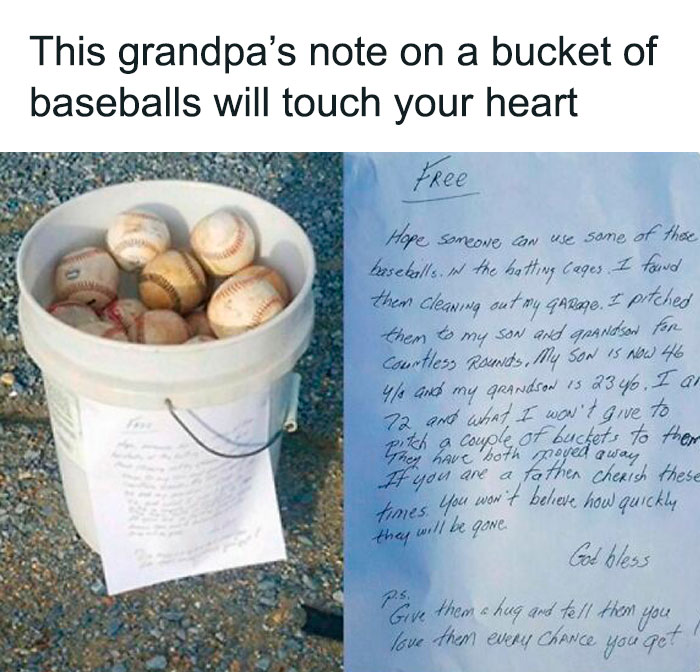 This grandpa's note on a bucket of
baseballs will touch your heart
Free
Hope someone can use some of these
baseballs. in the batting cages. I found
them cleaning out my garage. I pitched
them to my son and grandson for
countless rounds. My son is now 46
y/o and my grandson is 23 y/o. I am
72 and what I won't give to
pitch a couple of buckets to them
They have both moved away
If you are a father cherish these
times. You won't believe how quickly
they will be gone.
God bless
p.s.
Give them a hug and tell them you
love them every chance you get!